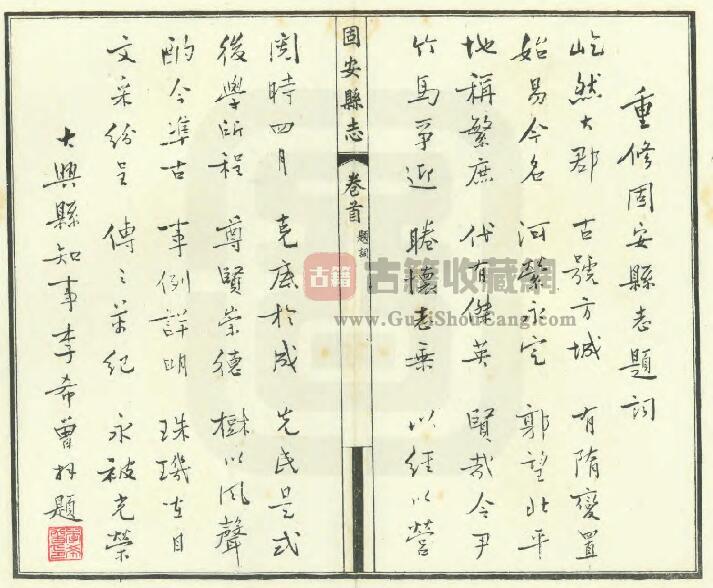 重修固安縣志題詞
屹然大郡 古號方城 有隋變置
始易今名 河縈永定 郭望北平
地稱繁庶 代有健英 賢哉令尹
竹馬爭迎 睠懷志乘 以經以營
固安縣志
卷首
題詞
閱時四月 克底於成 先民是式
後學所程 尊賢崇德 樹以風聲
酌今準古 事例詳明 珠璣在目
文采紛呈 傳之萬紀 永被光榮
大興縣知事李希曾拜題
古籍
古籍收藏網
www.GuJiShouCang.com